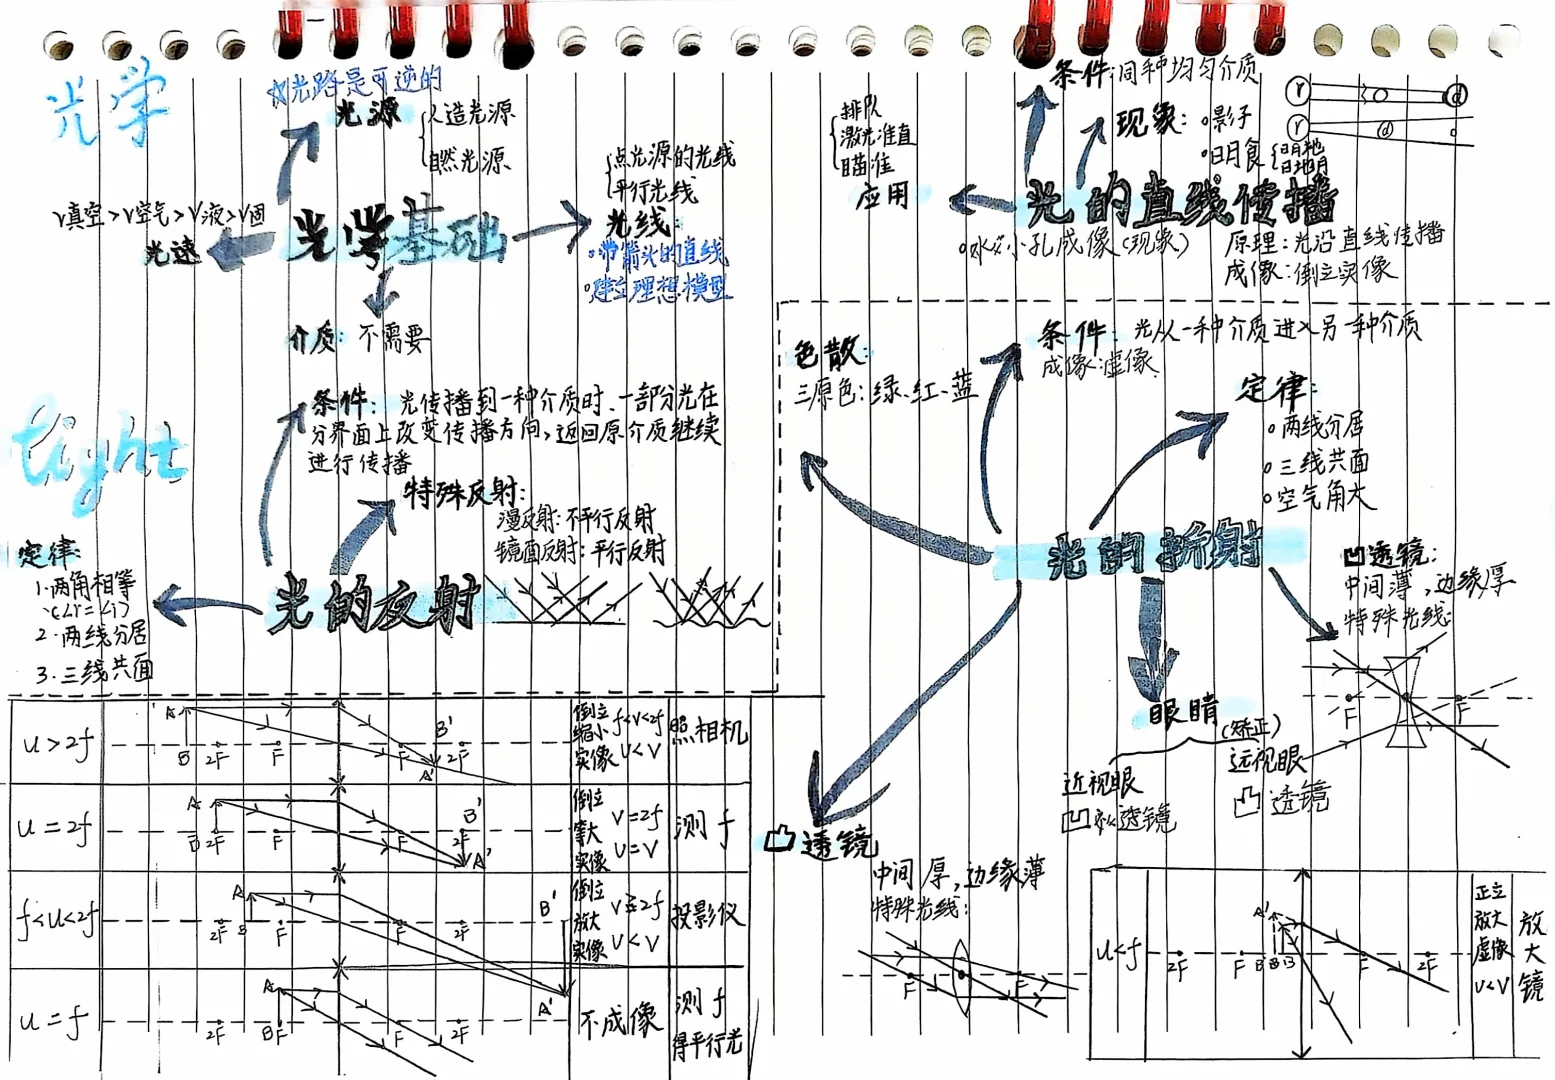 光学
☆光路是可逆的
光源
人造光源
自然光源
V真空>V空气>V液>V固
光速
光学基础
点光源的光线
平行光线
光线:
带箭头的直线
建立理想模型
介质: 不需要
light
条件: 光传播到一种介质时、一部分光在
分界面上改变传播方向,返回原介质继续
进行传播
特殊反射:
漫反射:不平行反射
镜面反射:平行反射
定律:
1.两角相等
(∠r=∠i)
2.两线分居
3.三线共面
光的反射
条件:同种均匀介质
现象:
影子
日月食
日月地
日地月
r
d
r
d
排队
激光准直
瞄准
应用
光的直线传播
小孔成像(现象)
原理:光沿直线传播
成像:倒立实像
色散:
三原色:绿、红、蓝
条件: 光从一种介质进入另一种介质
成像:虚像
定律:
两线分居
三线共面
空气角大
光的折射
凹透镜:
中间薄,边缘厚
特殊光线:
F
F
眼睛
(矫正)
近视眼
凹透镜
远视眼
凸透镜
凸透镜
中间厚,边缘薄
特殊光线:
F
F
u>2f
A
B 2F F F B' 2F
A'
倒立
缩小
实像
f<v<2f
u<v
照相机
u=2f
A
B 2F F F B' 2F
A'
倒立
等大
实像
v=2f
u=v
测f
f<u<2f
A
2F B F F 2F
B'
A'
倒立
放大
实像
v≥2f
u<v
投影仪
u=f
A
2F B F F 2F
不成像
测f
得平行光
u<f
A'
2F F B' B F 2F
正立
放大
虚像
u<v
放大镜